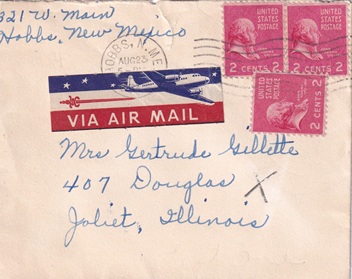 321 W. Main
Hobbs, New Mexico
HOBBS, N. ME
AUG 23
UNITED STATES POSTAGE
2 CENTS 2
UNITED STATES POSTAGE
2 CENTS 2
UNITED STATES POSTAGE
2 CENTS 2
VIA AIR MAIL
Mrs Gertrude Gillette
407 Douglas
Joliet, Illinois